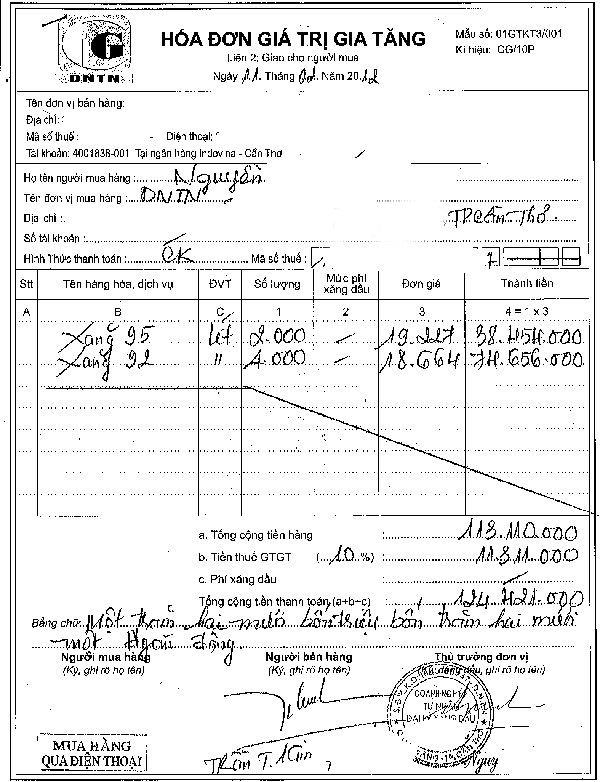 G
DNTN
HÓA ĐƠN GIÁ TRỊ GIA TĂNG
Liên 2: Giao cho người mua
Ngày 11 Tháng 01 Năm 2012
Mẫu số: 01GTKT3/001
Kí hiệu: CG/10P
Tên đơn vị bán hàng:
Địa chỉ:
Mã số thuế: Điện thoại:
Tài khoản: 4001838-001 Tại ngân hàng Indovina - Cần Thơ
Họ tên người mua hàng: Nguyên
Tên đơn vị mua hàng: DNTN
Địa chỉ: TP Cần Thơ
Số tài khoản:
Hình Thức thanh toán: CK Mã số thuế:
Stt Tên hàng hóa, dịch vụ ĐVT Số lượng Mức phí xăng dầu Đơn giá Thành tiền
A B C 1 2 3 4 = 1 x 3
Xăng 95 lít 2.000 - 19.227 38.454.000
Xăng 92 " 4.000 - 18.664 74.656.000
a. Tổng cộng tiền hàng : 113.110.000
b. Tiền thuế GTGT (...10 %) : 11.311.000
c. Phí xăng dầu :
Tổng cộng tền thanh toán (a+b+c) : 124.421.000
Bằng chữ: Một trăm hai mươi bốn triệu bốn trăm hai mươi
một ngàn đồng
Người mua hàng Người bán hàng Thủ trưởng đơn vị
(Ký, ghi rõ họ tên) (Ký, ghi rõ họ tên) (Ký, đóng dấu, ghi rõ họ tên)
DOANH NGHIỆP
TƯ NHÂN
MUA HÀNG
QUA ĐIỆN THOẠI
Trần T.